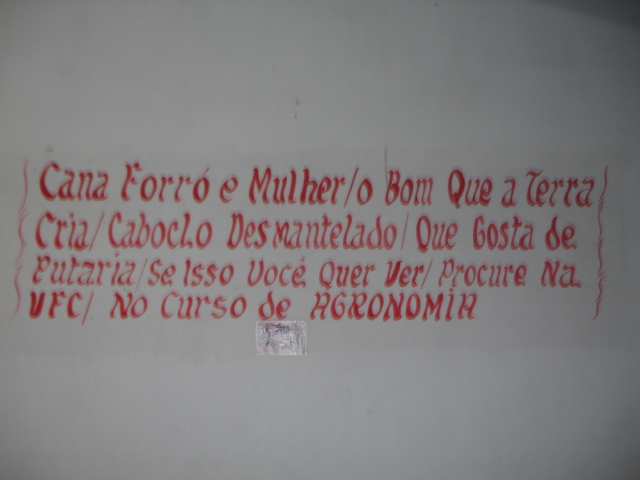 Cana Forró e Mulher/o Bom Que a Terra
Cria/Caboclo Desmantelado/Que Gosta de
Putaria/Se Isso Você Quer Ver/Procure Na
UFC/ No Curso de AGRONOMIA